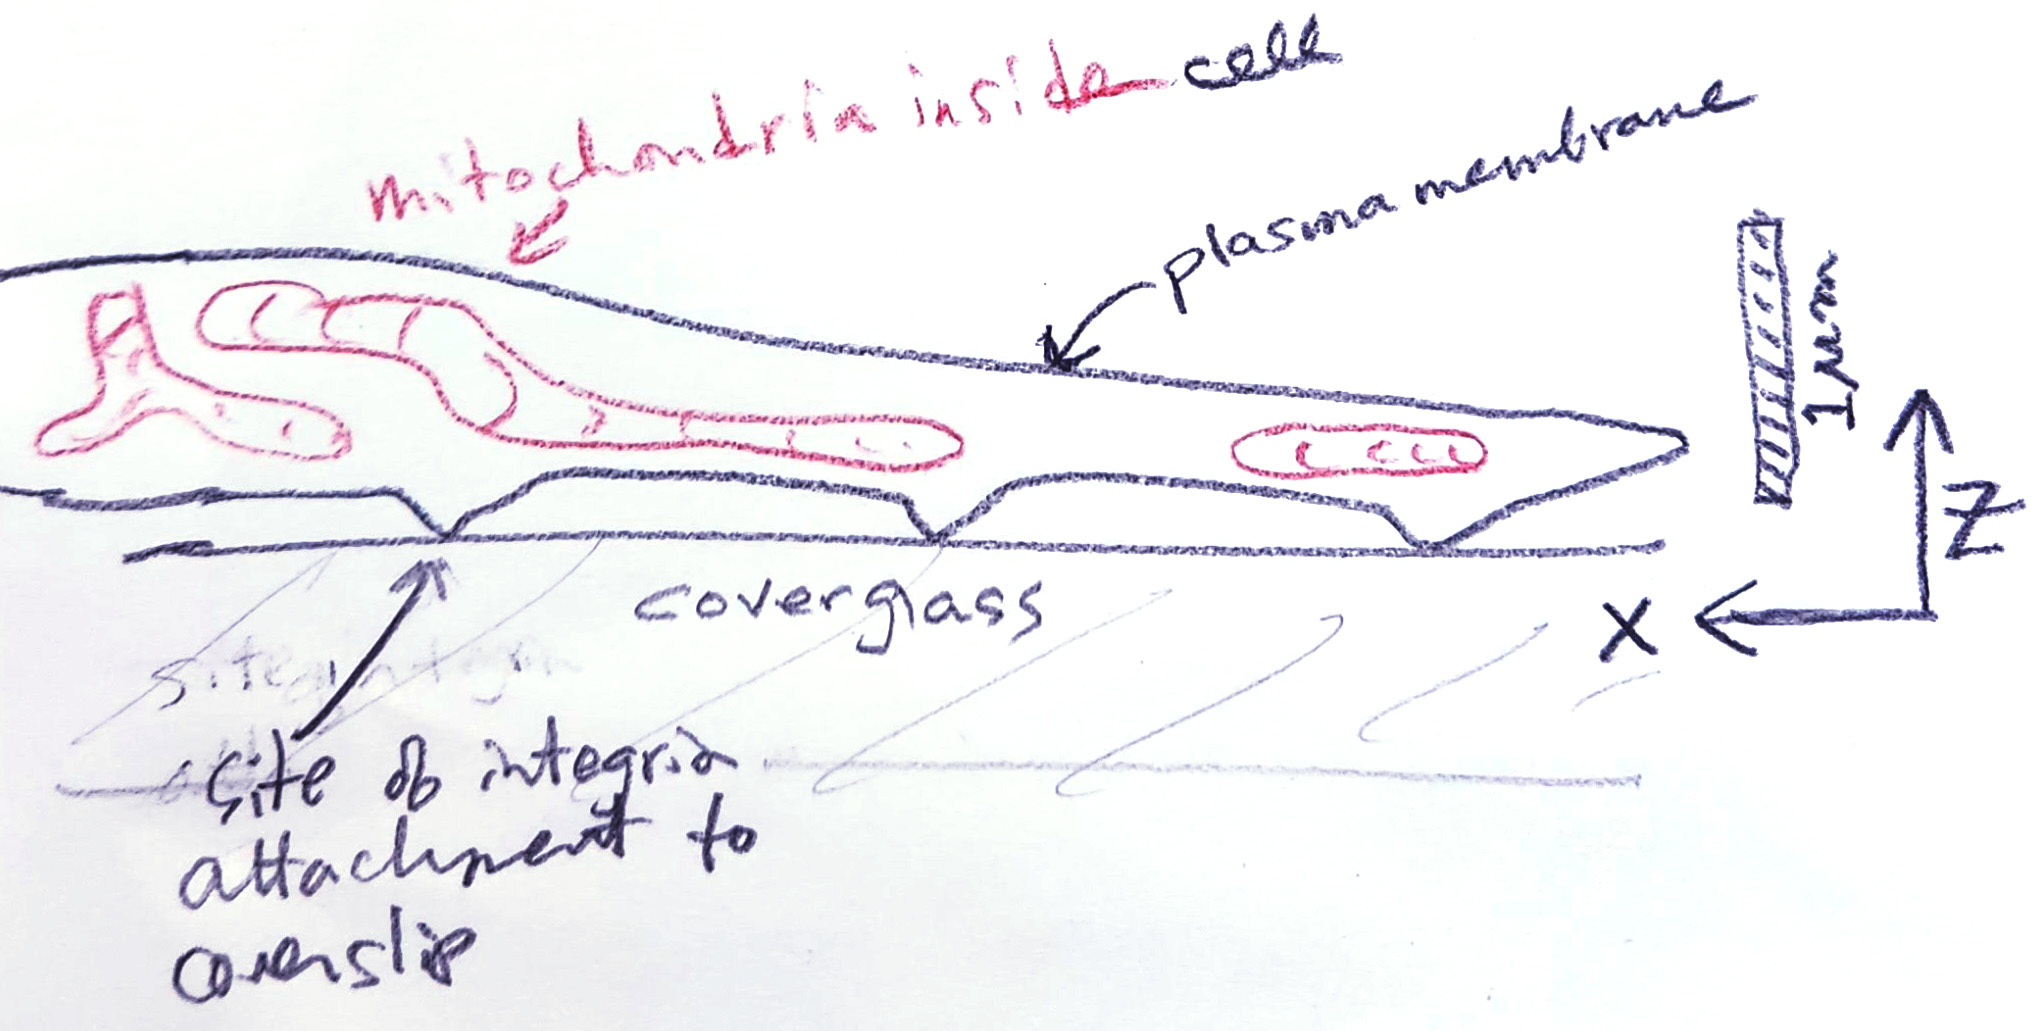 mitochondria inside cell
plasma membrane
1μm
Z
X
coverglass
site of integrin
attachment to
coverslip